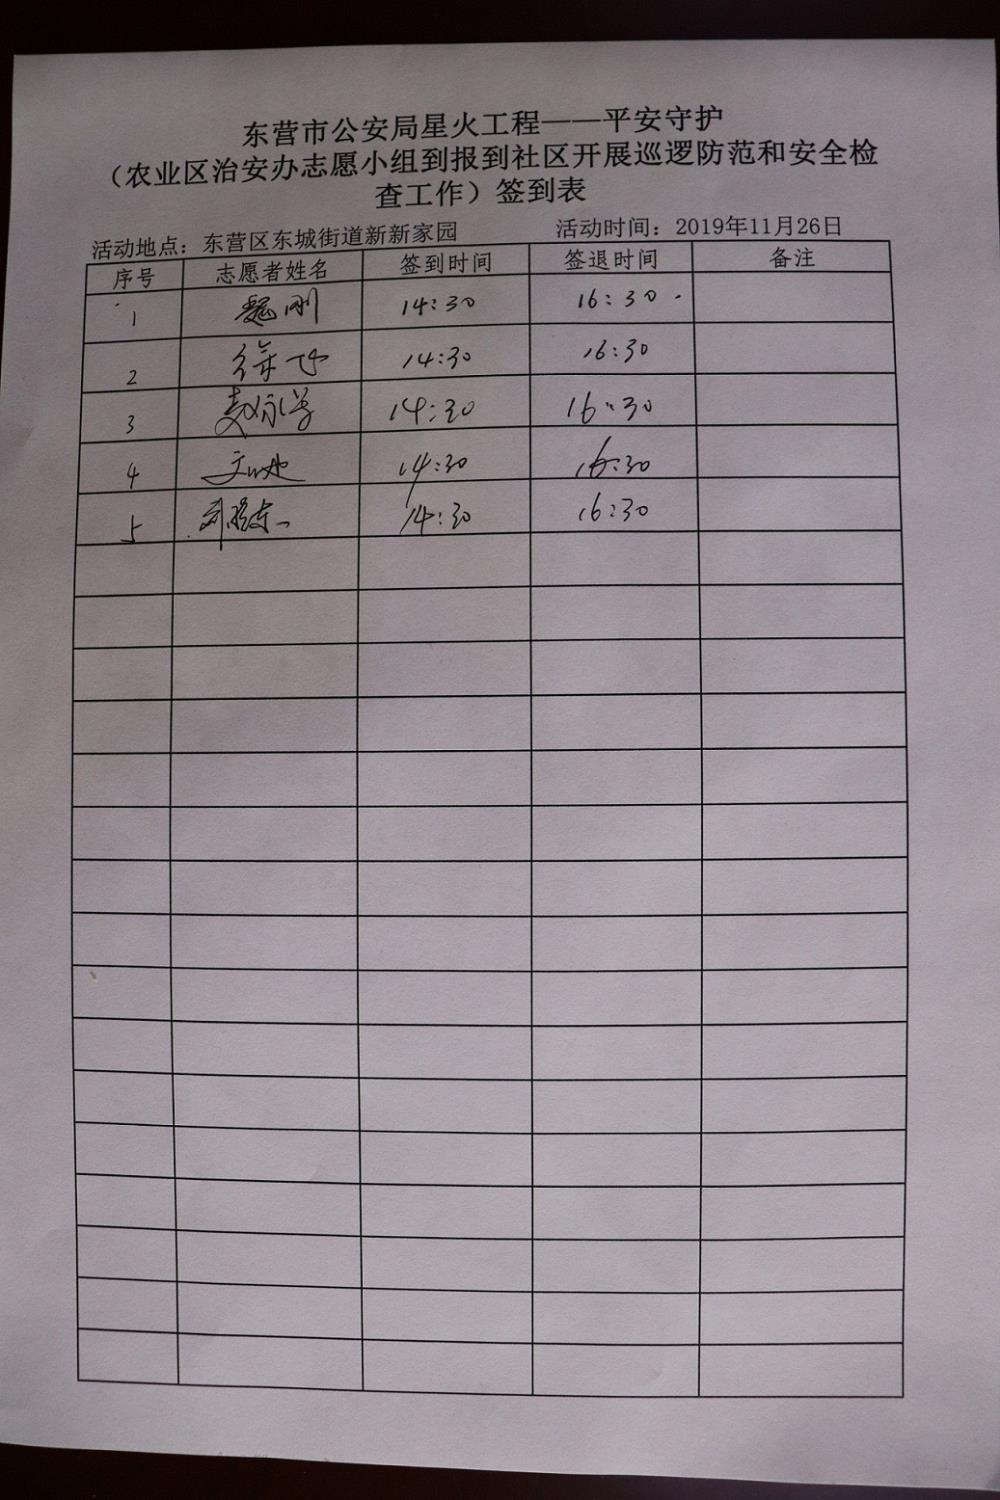 东营市公安局星火工程——平安守护
（农业区治安办志愿小组到报到社区开展巡逻防范和安全检
查工作）签到表
活动地点：东营区东城街道新新家园 活动时间：2019年11月26日
序号 志愿者姓名 签到时间 签退时间 备注
1 魏刚 14:30 16:30
2 徐 14:30 16:30
3 赵永学 14:30 16:30
4 14:30 16:30
5 14:30 16:30